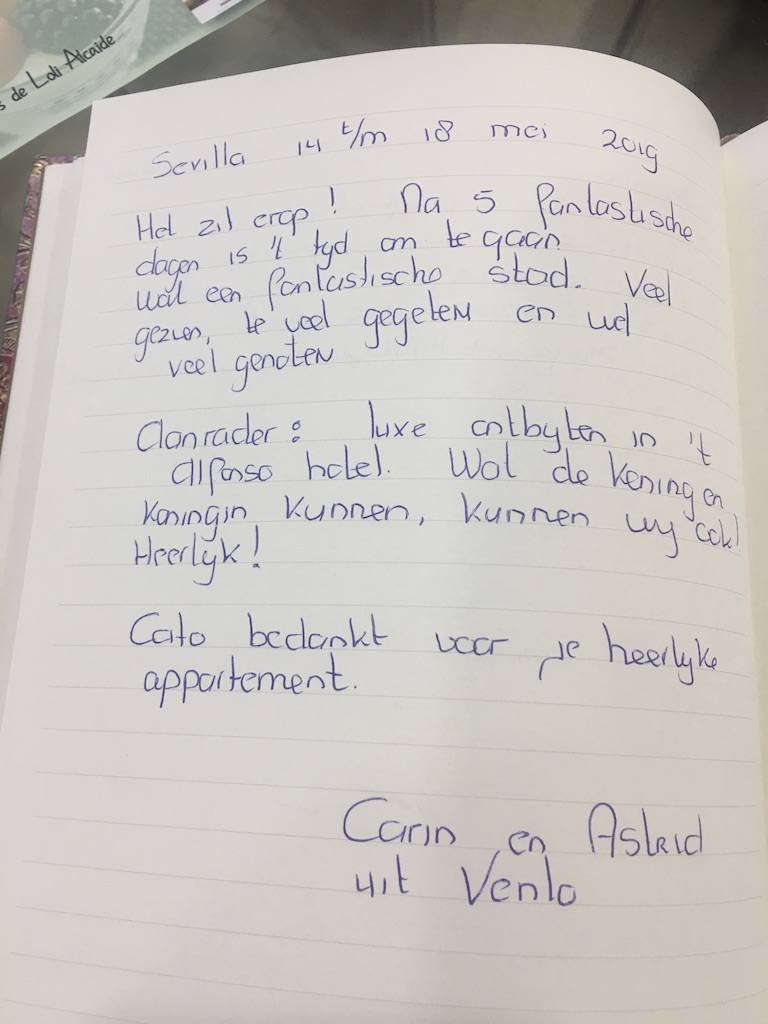 s de Loli Alcaide
Sevilla 14 t/m 18 mei 2019
Het zit erop! Na 5 fantastische
dagen is 't tyd om te gaan
Wat een fantastische stad. Veel
gezien, te veel gegeten en wel
veel genoten
Aanrader: luxe ontbyten in 't
Alfonso hotel. Wat de Koning en
Koningin kunnen, kunnen wy ook!
Heerlyk!
Cato bedankt voor je heerlyke
appartement.
Carin en Astrid
uit Venlo